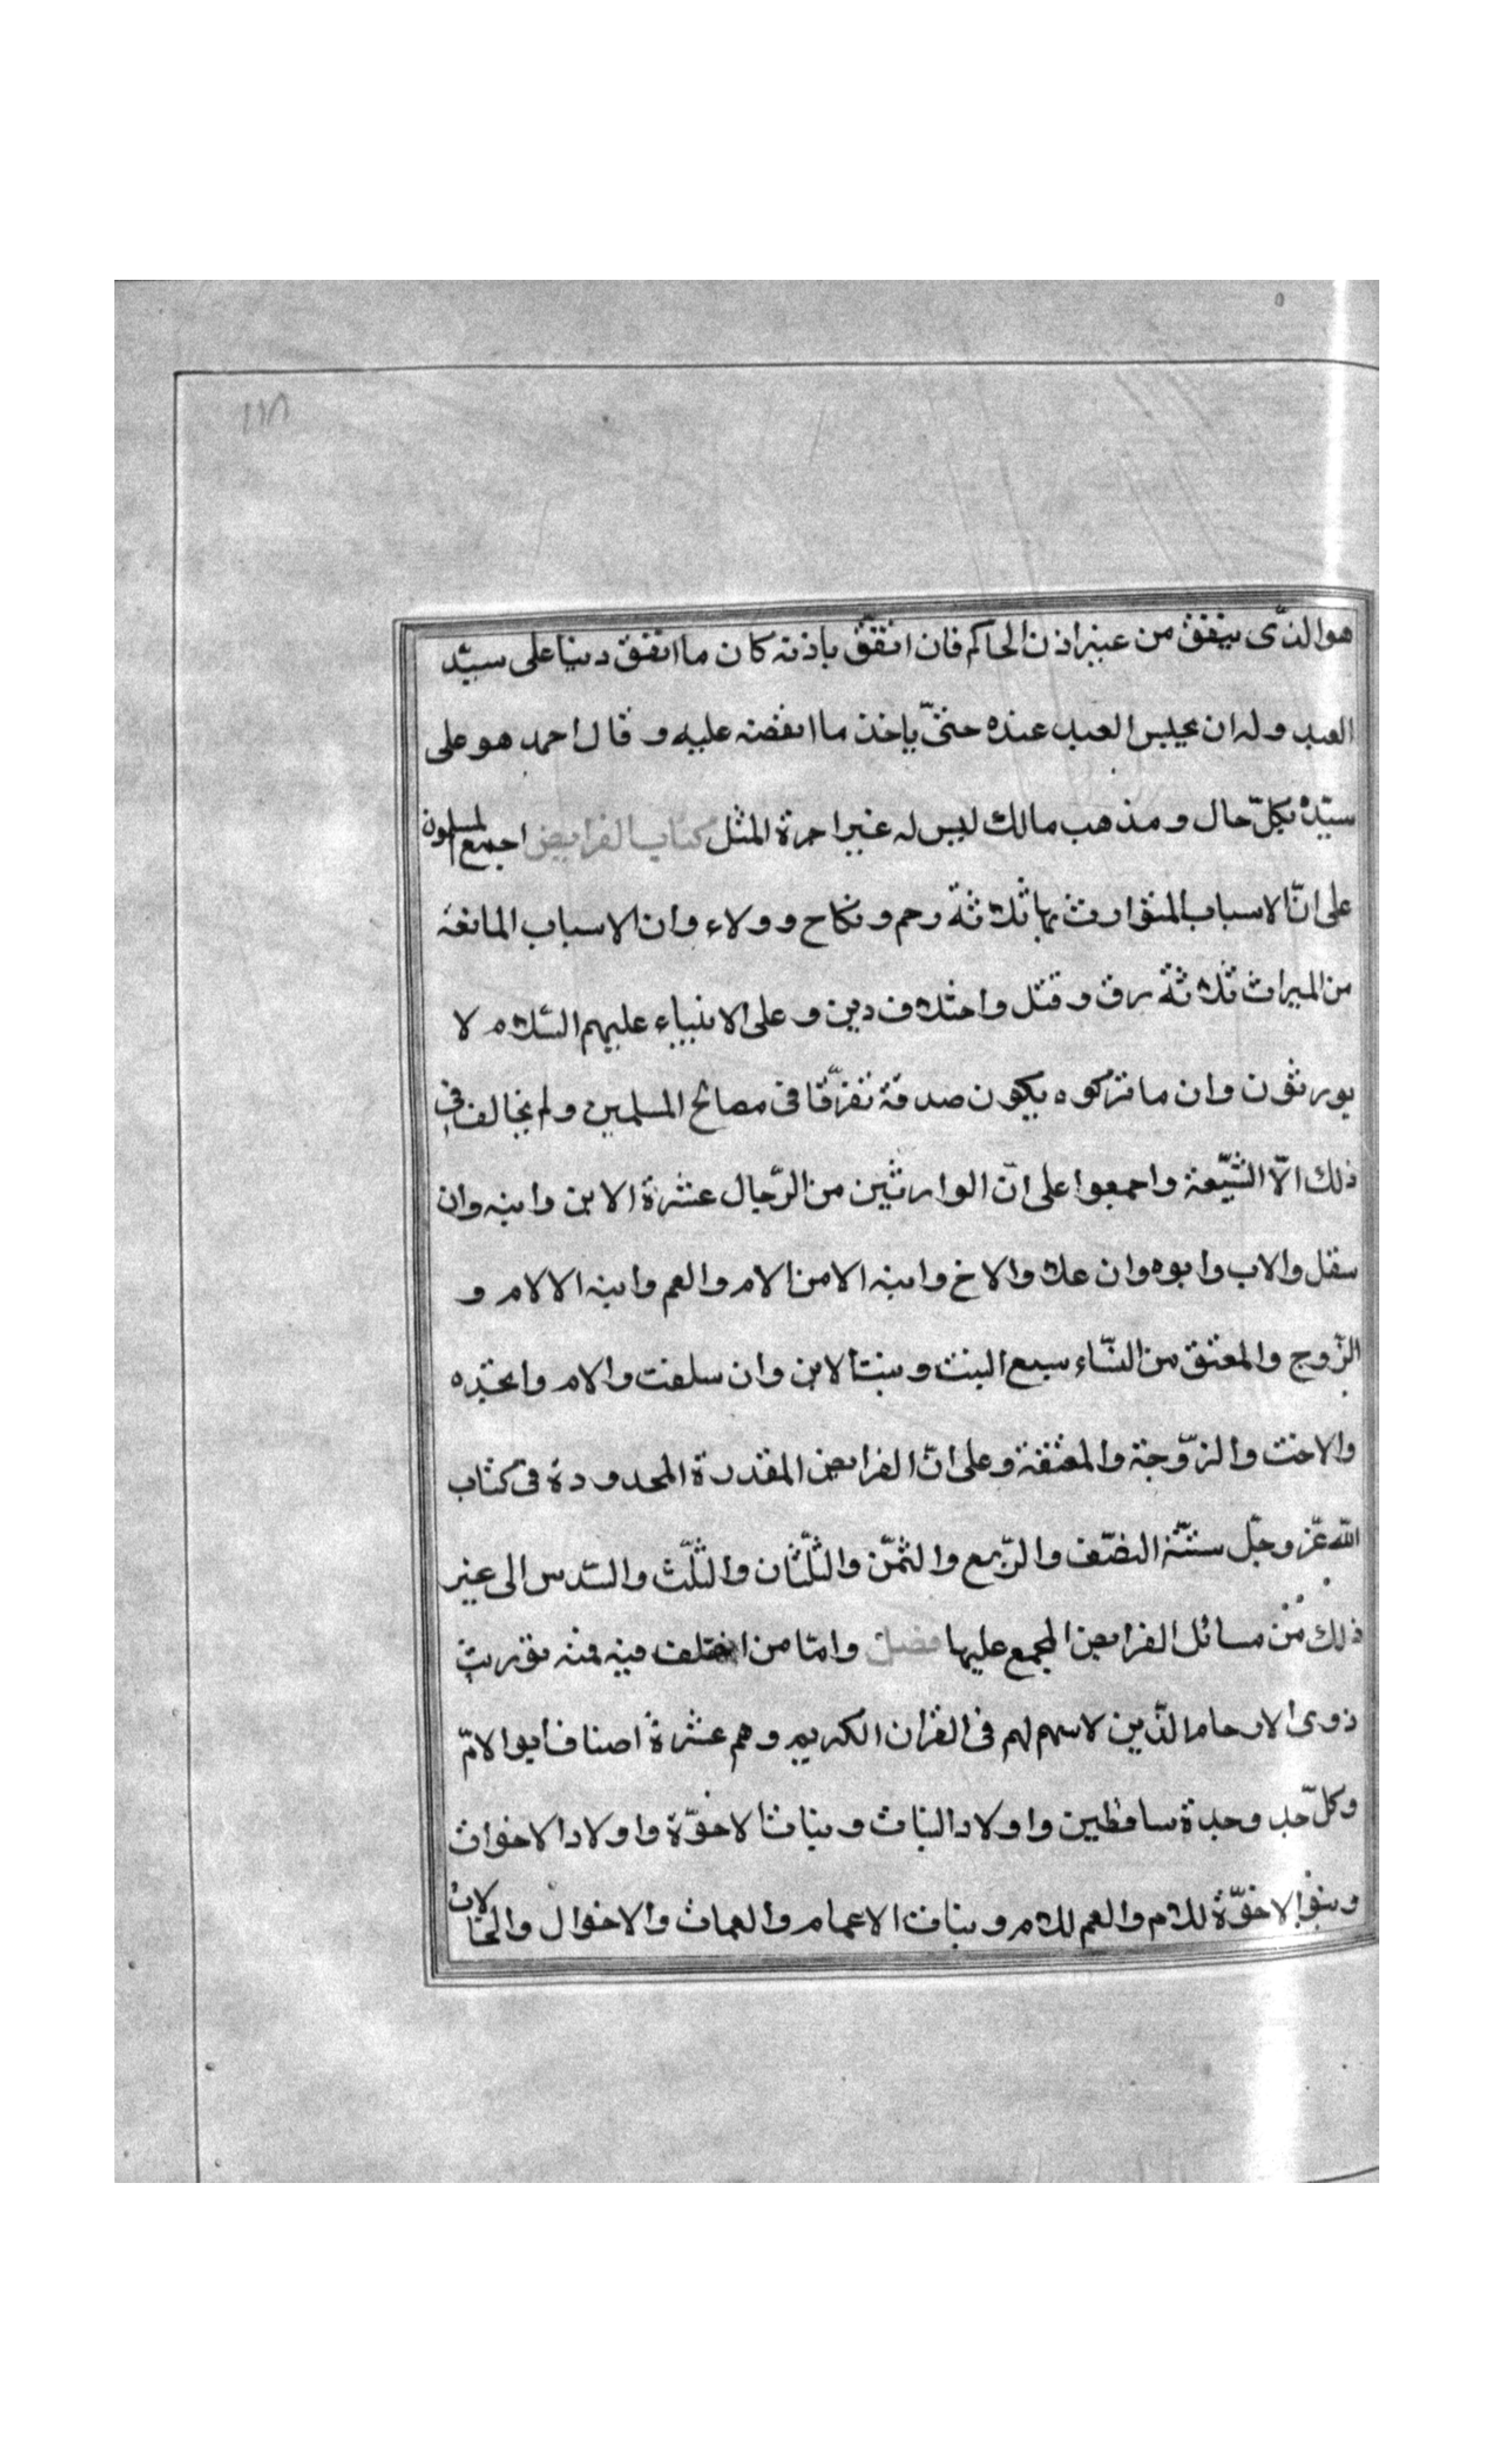 ١١٨
هو الذّى ينفق من غير اذن الحاكم فان انفقّ باذنه كان ما انفق دينا على سيّد
العبد وله ان يحبس العبد عنده حتىّ ياخذ ما انفضه عليه و قال احمد هو على
سيّده بكلّ حال و مذهب مالك ليس له غير اجرة المثل كتاب الفرايض اجمع المسلمون
على انّ الاسباب المتوارث بها ثلاثة رحم و نكاح و ولاء وان الاسباب المانعة
من الميراث ثلاثة رق و قتل واختلاف دين و على الانبياء عليهم السّلام لا
يورثون وان ما تركوه يكون صدقة تفرّقا فى مصالح المسلمين ولم يخالف فى
ذلك الاّ الشّيعة واجمعوا على انّ الوارثين من الرّجال عشرة الابن وابنه وان
سفل والاب وابوه وان علا والاخ وابنه الا من الام والعم وابنه الا لام و
الزّوج والمعتق من النسّاء سبع البنت و بنت الابن وان سلفت والام والجدّه
والاخت والزّوجة والمعتقة وعلى انّ الفرايض المقدرة المحدودة فى كتاب
اللّه عّز وجلّ ستّة النصّف والرّبع والثمّن والثلّثان والثلّث والسّدس الى غير
ذلك من مسائل الفرايض المجمع عليها فصل وامّا من اختلف فيه فمنه توريث
ذوى الارحام الذّين لا سهم لهم فى القران الكريم وهم عشرة اصناف ابو الامّ
وكلّ جد وجدة ساقطين واولاد البنات وبنات الاخوّة واولاد الاخوات
وبنو الاخوّة للام والعم للام وبنات الاعمام والعمات والاخوال والخالات